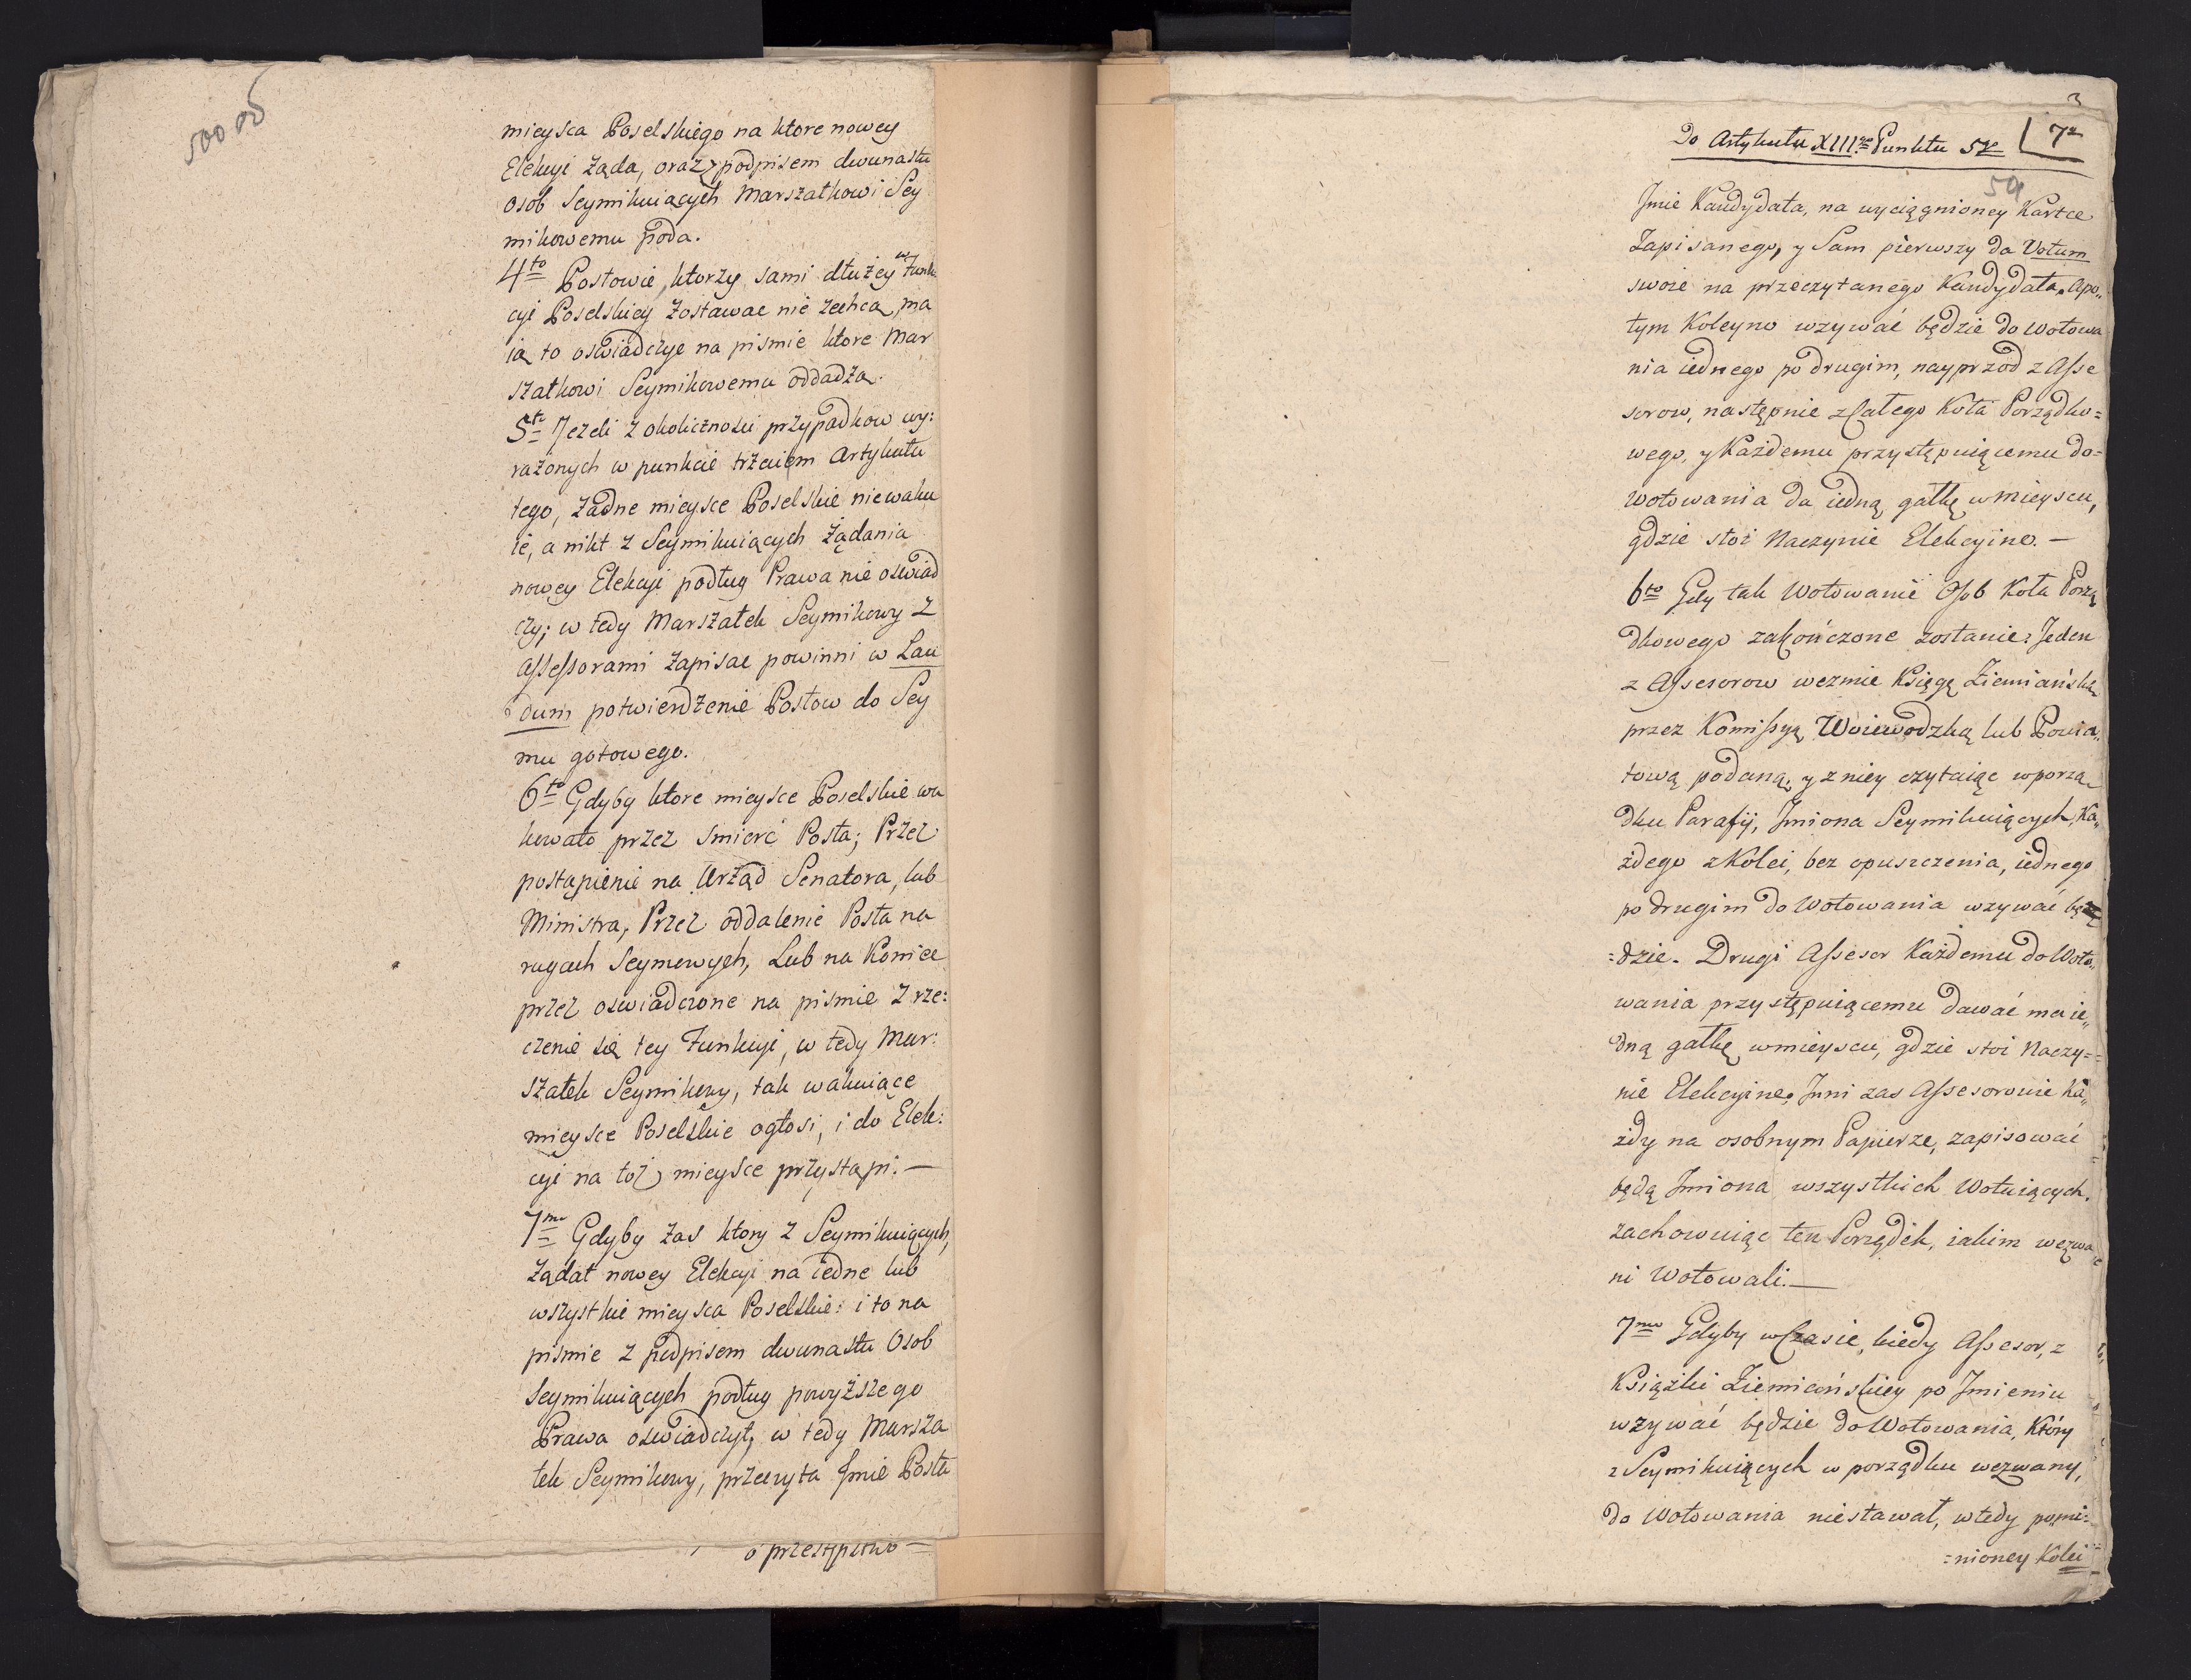 500 ob
mieysca Poselskiego na ktore nowey
Elekcyi żąda, oraz z podpisem dwunastu
osob Seymikuiących Marszałkowi Sey
mikowemu poda.
4to Posłowie, ktorzy sami dłużey w Funk
cyi Poselskiey zostawac nie zechcą, ma
ią to oswiadczyc na pismie ktore Mar
szałkowi Seymikowemu oddadzą.
5to Jezeli z okolicznosci przypadkow wy:
rażonych w punkcie trzecim Artykułu
tego, żadne mieysce Poselskie niewaku
ie, a nikt z Seymikuiących żądania
nowey Elekcyi podług Prawa nie oswiad
czy; w tedy Marszałek Seymikowy z
Assessorami zapisac powinni w Lau
dum potwierdzenie Posłow do Sey
mu gotowego.
6to Gdyby ktore mieysce Poselskie wa
kowało przez smierć Posła; Przez
postąpienie na Urząd Senatora, lub
Ministra, Przez oddalenie Posła na
rugach Seymowych, Lub na Koniec
przez oswiadczone na pismie zrze:
czenie się tey Funkcyi, w tedy Mar:
szałek Seymikowy, tak wakuiące
mieysce Poselskie ogłosi, i do Elek:
cyi na toż mieysce przystąpi. —
7mo Gdyby zas ktory z Seymikuiących,
żądał nowey Elekcyi na iedne lub
wszystkie mieysca Poselskie: i to na
pismie z podpisem dwunastu Osob
Seymikuiących podług powyższego
Prawa oswiadczył, w tedy Marsza
łek Seymikowy, przeczyta Jmie Posła
o przestępstwo —
3
Do Artykułu XIIIgo Punktu 5go 7a
59
Jmie Kandydata, na wyciągnioney Kartce
Zapisanego, y Sam pierwszy da Votum
swoie na przeczytanego Kandydata. apo„
tym Koleyno wzywać będzie do wotowa
nia iednego po drugim, nayprzod z Asse
sorow, następnie z Całego Koła Porządko=
wego, y Każdemu przystępuiącemu do=
Wotowania da iedną gałkę w mieyscu,
gdzie stoi Naczynie Elekcyine. —
6to Gdy tak Wotowanie Osob Koła Porzą
dkowego zakończone zostanie: Jeden
z Assesorow wezmie Księgę Ziemiańską
przez Komissyą Woiewodzką lub Powia„
tową podaną; y z niey czytaiąc w porzą
dku Parafij, Jmiona Seymikuiących, Ka„
żdego z Kolei, bez opuszczenia, iednego
po drugim do Wotowania wzywać bę
=dzie. Drugi Assesor Każdemu do Woto„
wania przystępuiącemu dawać ma ie„
dną gałkę w mieyscu, gdzie stoi Naczy=
nie Elekcyine. Jnni zas Assesorowie ka„
żdy na osobnym Papierze, zapisować
będą Jmiona wszystkich Wotuiących.
zachowuiąc ten Porządek, iakim wezwa
ni Wotowali. —
7mo Gdyby w Czasie, kiedy Assesor, z
Książki Ziemiańskiey po Jmieniu
wzywać będzie do Wotowania, Który
z Seymikuiących w porządku wezwany,
do Wotowania niestawał, wtedy pomi=
=nioney Kolei